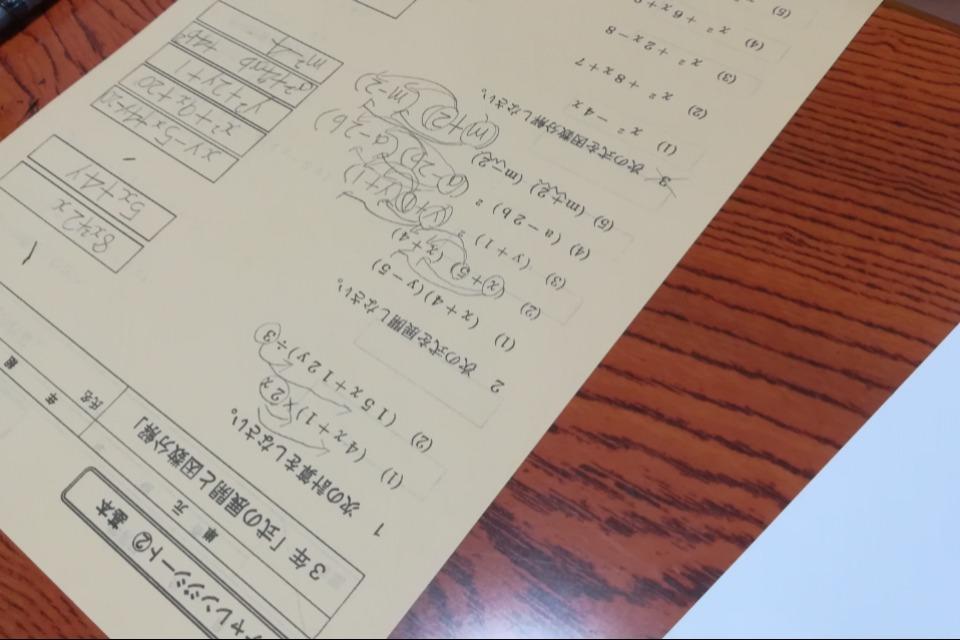 チャレンジシート② 基本
単 元
3年「式の展開と因数分解」
年
組
氏名
1 次の計算をしなさい。
(1) (4x+1)×2x
8x²+2x
(2) (15x+12y)÷3
5x+4y
2 次の式を展開しなさい。
(1) (x+4)(y-5)
xy-5x+4y-20
(2) (x+5)(x+4)
x²+9x+20
(3) (y+1)²
(y+1)(y+1)
y²+2y+1
(4) (a-2b)²
(a-2b)(a-2b)
(5) (m+2)(m-2)
(m+2)(m-2)
m²-4
3 次の式を因数分解しなさい。
(1) x²-4x
(2) x²+8x+7
(3) x²+2x-8
(4) x²+6x+9
(5)